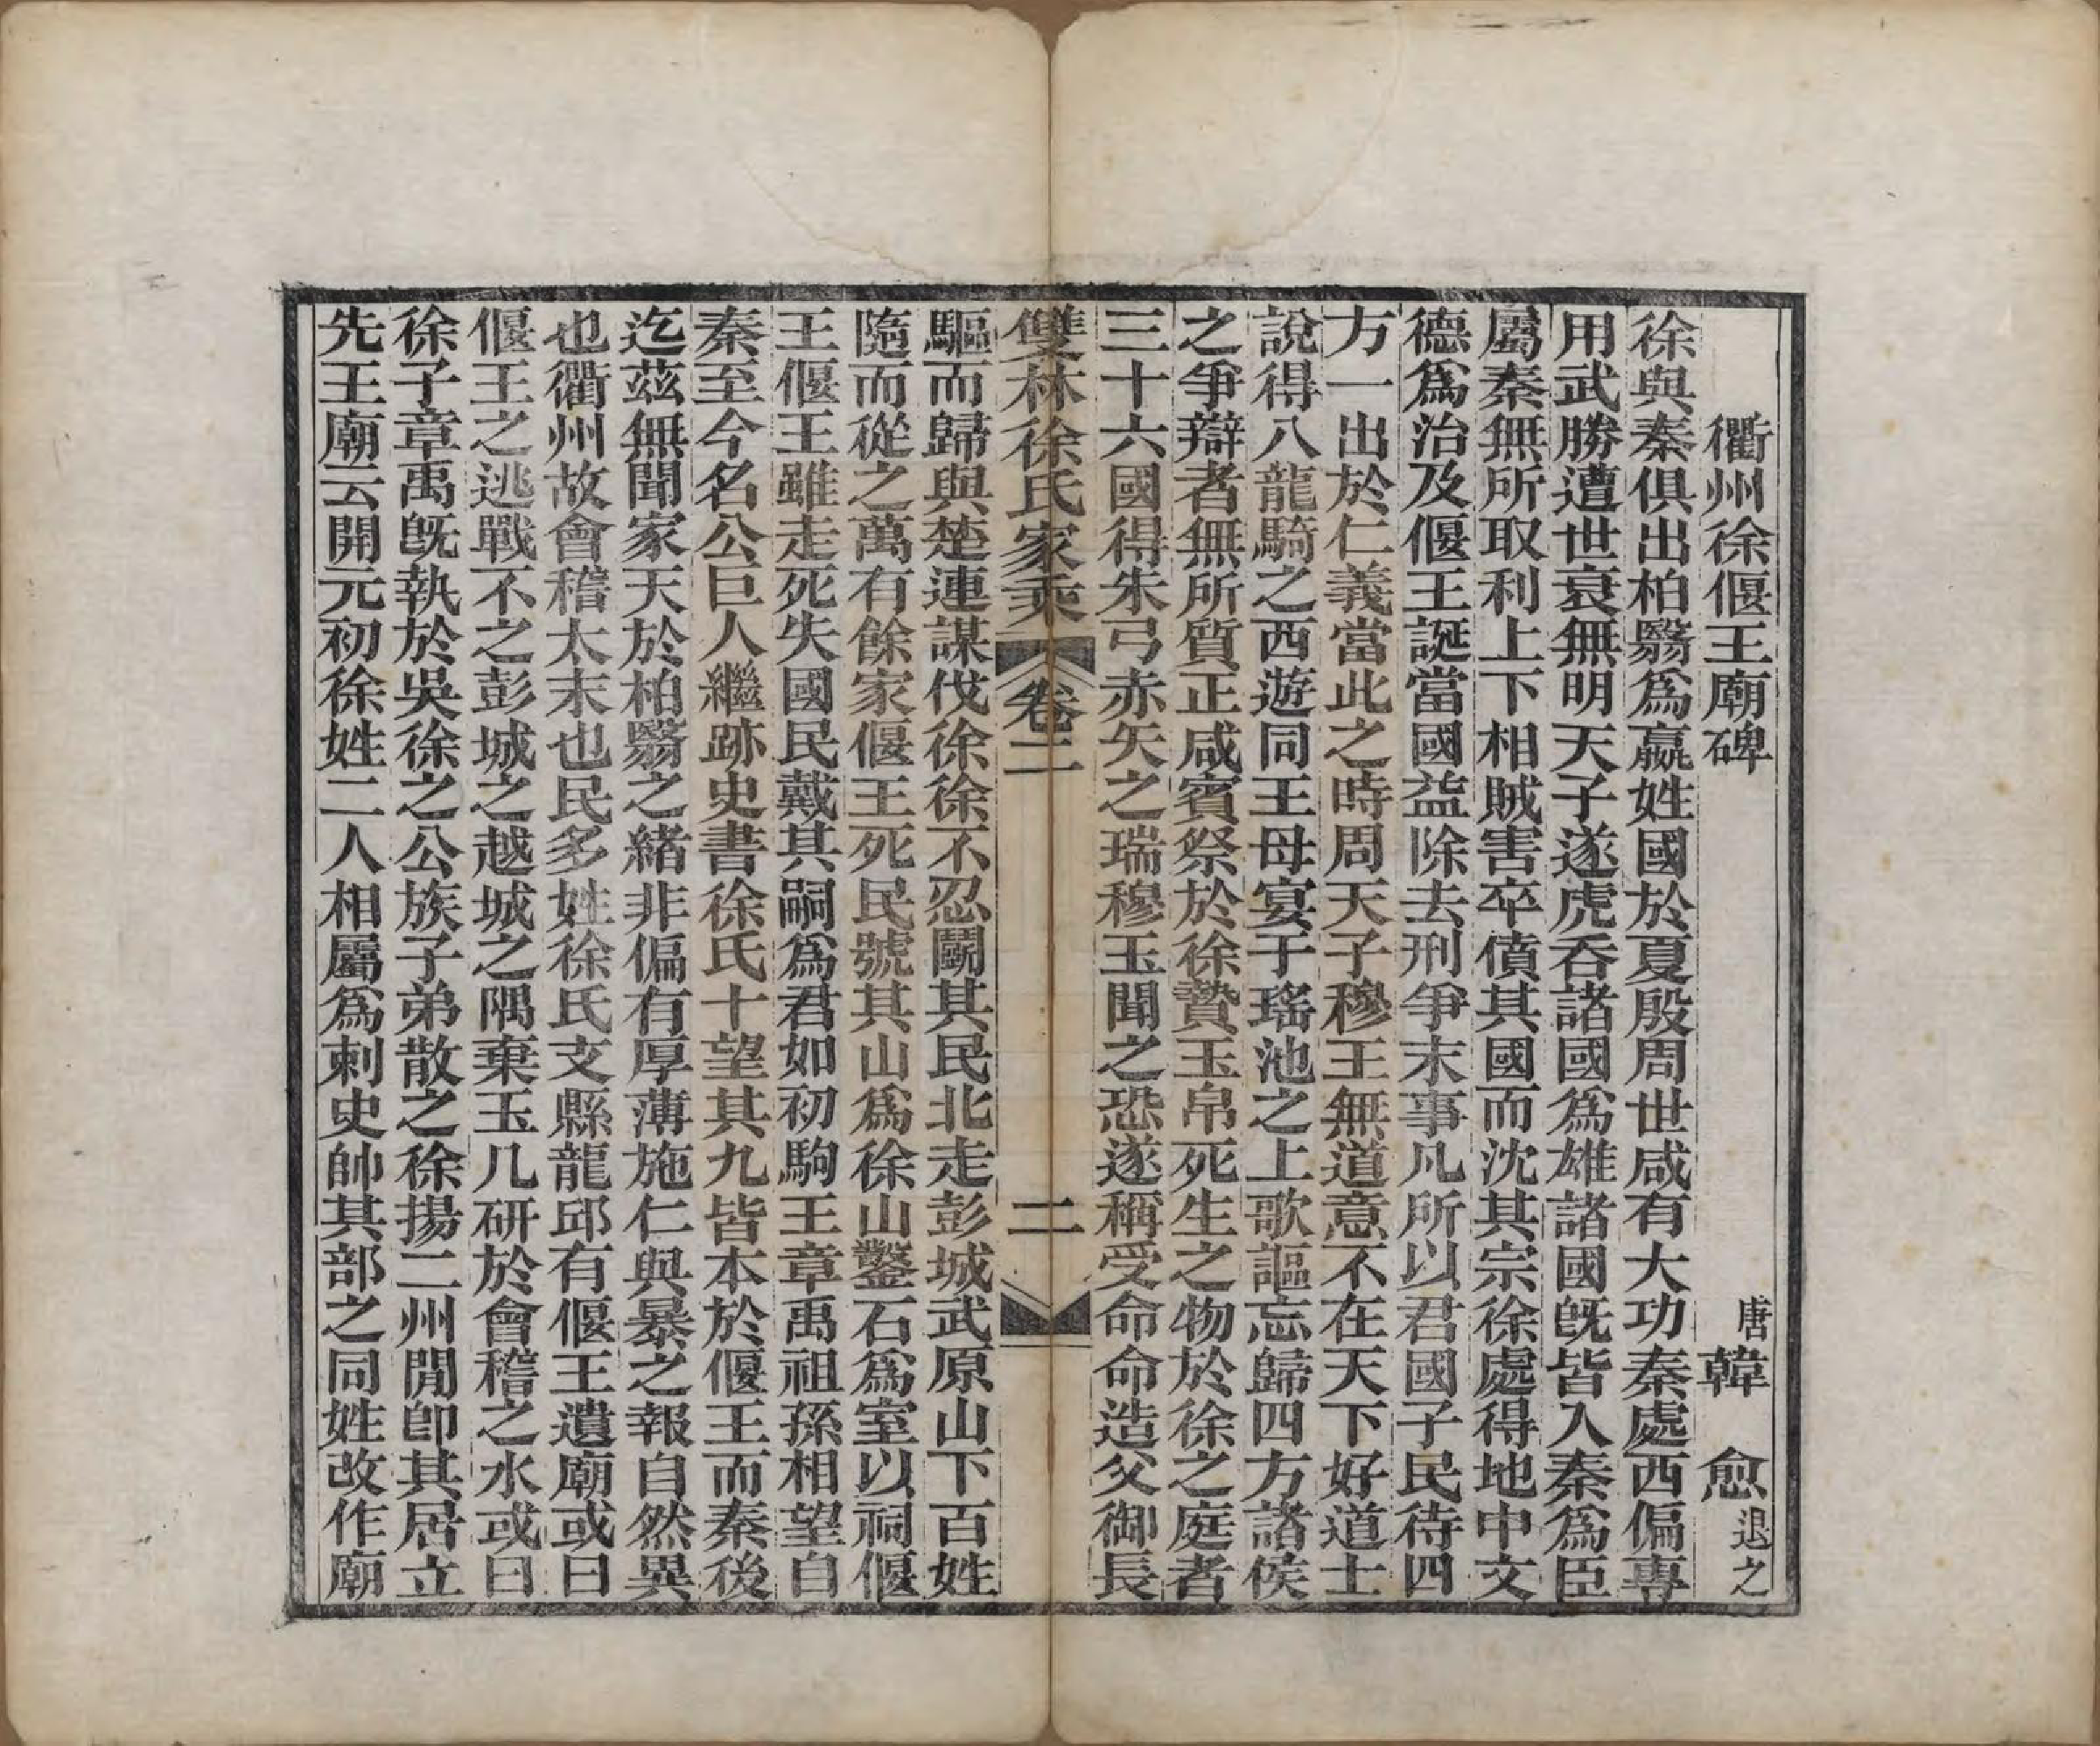 衢州徐偃王廟碑　唐韓愈退之
徐與秦俱出柏翳爲嬴姓國於夏殷周世咸有大功秦處西偏専
用武勝遭世衰無明天子遂虎吞諸國爲雄諸國旣皆入秦爲臣
屬秦無所取利上下相賊害卒僨其國而沈其宗徐處得地中文
德爲治及偃王誕當國益除去刑爭末事凡所以君國子民待四
方一出於仁義當此之時周天子穆王無道意不在天下好道士
說得八龍騎之西遊同王母宴于瑤池之上歌謳忘歸四方諸侯
之爭辯者無所質正咸賓祭於徐贄玉帛死生之物於徐之庭者
三十六國得朱弓赤矢之瑞穆王聞之恐遂稱受命命造父御長
雙林徐氏家乘　卷二　二
驅而歸與楚連謀伐徐徐不忍鬬其民北走彭城武原山下百姓
隨而從之萬有餘家偃王死民號其山爲徐山鑿石爲室以祠偃
王偃王雖走死失國民戴其嗣爲君如初駒王章禹祖孫相望自
秦至今名公巨人繼跡史書徐氏十望其九皆本於偃王而秦後
迄茲無聞家天於柏翳之緖非偏有厚薄施仁與暴之報自然異
也衢州故會稽太末也民多姓徐氏支縣龍邱有偃王遺廟或曰
偃王之逃戰不之彭城之越城之隅棄玉几硏於會稽之水或曰
徐子章禹旣執於吳徐之公族子弟散之徐揚二州閒卽其居立
先王廟云開元初徐姓二人相屬爲剌史帥其部之同姓改作廟